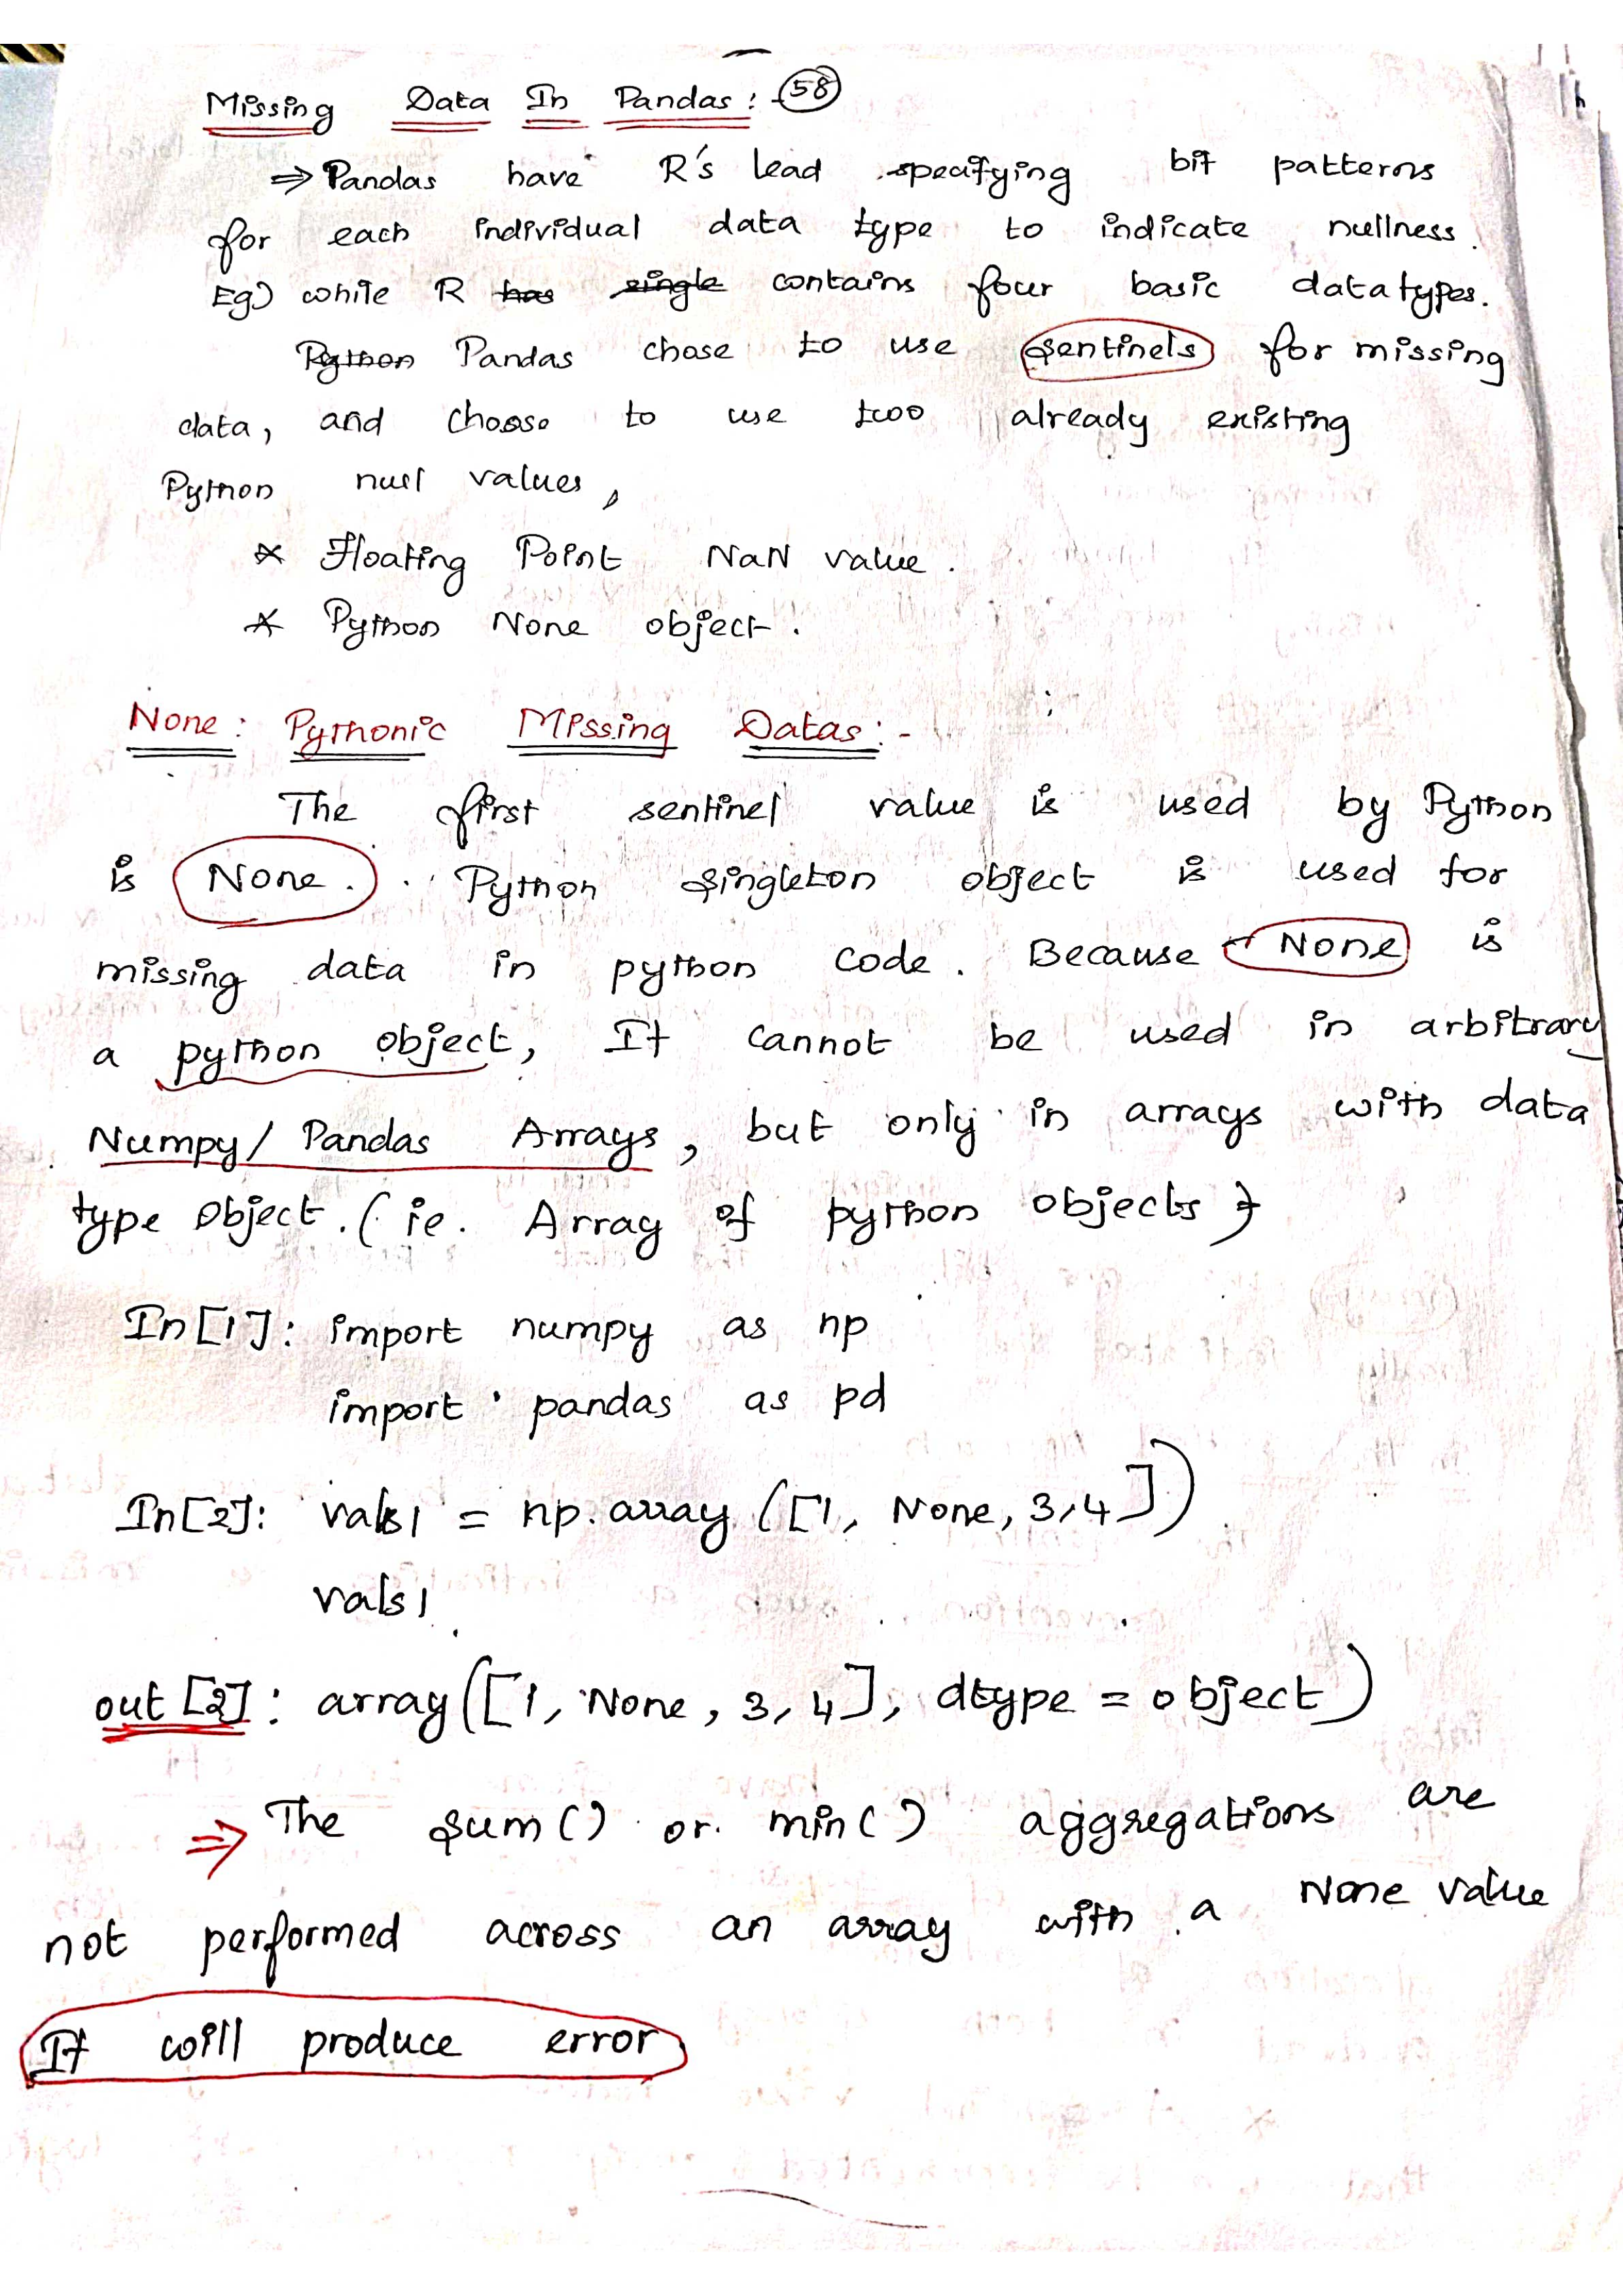 Missing Data In Pandas :- 58
⇒ Pandas have R's lead specifying bit patterns
for each individual data type to indicate nullness.
Eg) while R has single contains four basic datatypes.
Python Pandas chose to use sentinels for missing
data, and choose to use two already existing
Python null values,
* Floating Point NaN value.
* Python None object.
None : Pythonic Missing Datas :-
The first sentinel value is used by Python
is None. Python singleton object is used for
missing data in python code. Because None is
a python object, It cannot be used in arbitrary
Numpy/ Pandas Arrays, but only in arrays with data
type object. ( ie. Array of python objects )
In [1]: import numpy as np
import pandas as pd
In [2]: vals1 = np.array ([1, None, 3,4])
vals1
out [2]: array([1, None, 3, 4], dtype = object)
⇒ The sum() or min() aggregations are
not performed across an array with a None value
It will produce error